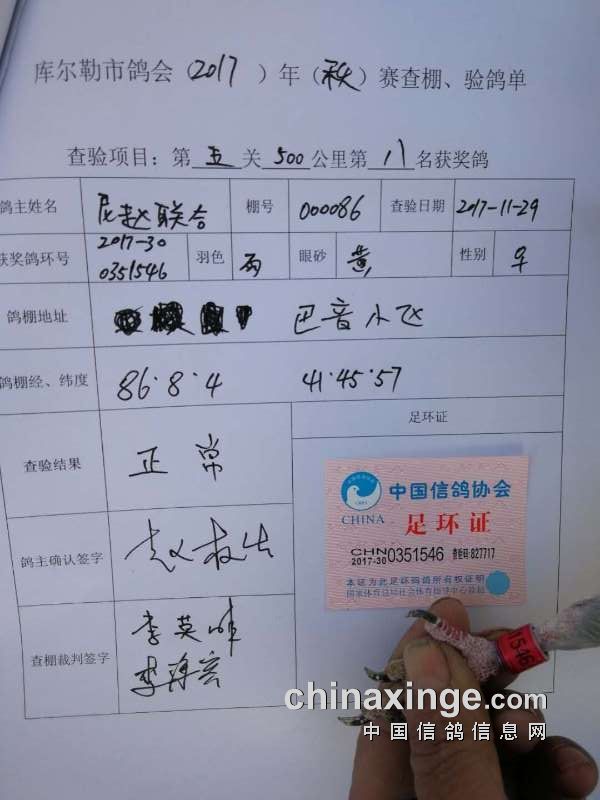 库尔勒市鸽会（2017）年（秋）赛查棚、验鸽单
查验项目：第 五 关 500 公里第 八 名获奖鸽
鸽主姓名 赵联合 棚号 000086 查验日期 2017-11-29
获奖鸽环号 2017-30 0351546 羽色 雨 眼砂 黄 性别 ♀
鸽棚地址 巴音小飞
鸽棚经、纬度 86·8·4 41·45·57
查验结果 正常
足环证
中国信鸽协会
CHINA 足环证
CHN 2017-30 0351546 查验码:827717
本证为此足环鸽的所有权证明
国家体育总局社会体育指导中心监制
鸽主确认签字
查棚裁判签字 李英
1546
chinaxinge.com
中国信鸽信息网